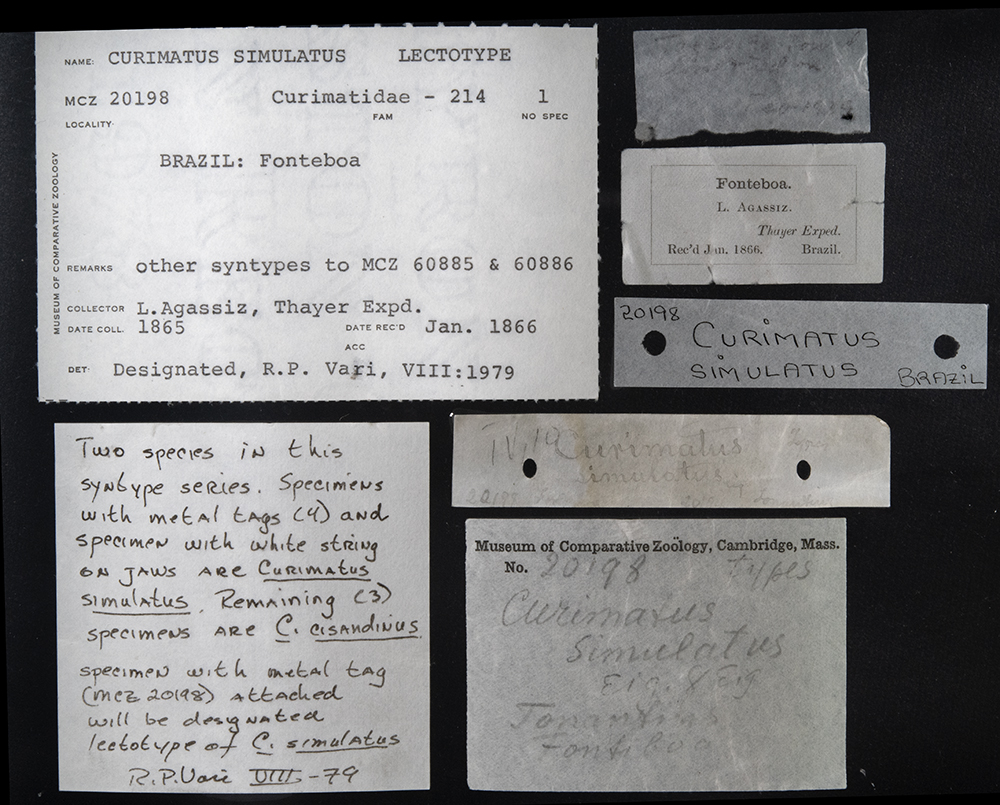 NAME: CURIMATUS SIMULATUS LECTOTYPE
MCZ 20198 Curimatidae - 214 1
FAM NO SPEC
LOCALITY
BRAZIL: Fonteboa
MUSEUM OF COMPARATIVE ZOOLOGY
REMARKS other syntypes to MCZ 60885 & 60886
COLLECTOR L.Agassiz, Thayer Expd.
DATE COLL. 1865 DATE REC'D Jan. 1866
ACC
DET. Designated, R.P. Vari, VIII:1979
Fonteboa.
L. AGASSIZ.
Thayer Exped.
Rec'd Jan. 1866. Brazil.
20198
CURIMATUS
SIMULATUS
BRAZIL
Two species in this
syntype series. Specimens
with metal tags (4) and
specimen with white string
on jaws are Curimatus
simulatus. Remaining (3)
specimens are C. cisandinus.
specimen with metal tag
(MCZ 20198) attached
will be designated
lectotype of C. simulatus
R.P. Vari VIII-79
IV,19 Curimatus
simulatus.
20198
Museum of Comparative Zoölogy, Cambridge, Mass.
No. 20198 types
Curimatus
Simulatus
Tonantins
Fonteboa